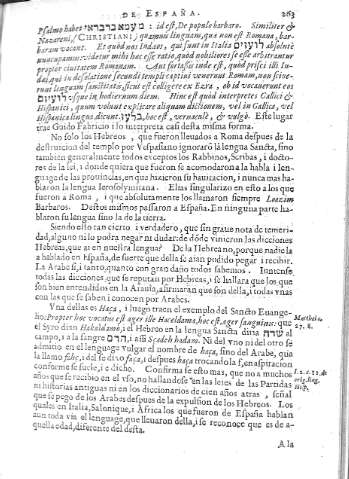 DE ESPAÑA. 263
Psalmo habet מעמא ברבראי : id est, De populo barbaro. Similiter &
Nazareni, CHRISTIANI, quamuis linguam, quæ non est Romana, bar-
baram vocant. Et quòd nos Iudæi, qui sunt in Italia לועזים absolutè
nuncupamur: videtur mihi hac esse ratio, quòd nobiliores se esse arbitrantur
propter ciuitatem Romanam. Aut fortassis inde est, quòd prisci illi Iu-
dæi, qui in desolatione secundi templi captiui venerunt Romam, non sciue-
runt linguam sanctitatis, sicut est colligere ex Esara, ob id vocauerunt eos
לועזים vsque in hodiernum diem. Hinc est quòd interpretes Gallici &
Hispanici, quum volunt explicare aliquam dictionem, vel in Gallica, vel
Hispanica lingua, dicunt. בלעז, hoc est, vernaculè, & vulgò. Este lugar
trae Guido Fabricio i lo interpreta casi desta misma forma.
No solo los Hebreos, que fueron lleuados a Roma despues de la
destruicion del templo por Vespasiano ignoraró la lengua Sancta, sino
tambien generalmente todos exceptos los Rabbinos, Scribas, i docto-
res de la lei, i donde quiera que fueron se acomodaron a la habla i len-
guage de las prouincias, en que hizieron su habitacion, i nunca mas ha-
blaron la lengua Ierosolymitana. Elias singularizo en esto a los que
fueron a Roma, i que absolutamente los llamaron siempre Loezim
Barbaros. Destos mismos passaron a España. En ninguna parte ha-
blaron su lengua sino la de la tierra.
Siendo esto tan cierto i verdadero, que sin graue nota de temeri-
dad, alguno ni lo podra negar ni dudar: de dóde vinieron las dicciones
Hebreas, que ai en nuestra lengua? De la Hebrea no, porque nadie la
a hablado en España, de fuerte que della se aian podido pegar i recibir.
La Arabe si, i tanto, quanto con gran daño todos sabemos.
todas las dicciones, que se reputan por Hebreas, i se hallara que los que
son bien entendidos en la Arauia, afirmaràn que son della, i todas vnas
con las que se saben i conocen por Arabes.
Vna dellas es Haça, i luego traen el exemplo del Sancto Euange-
lio: Propter hoc vocatus est ager ille Haceldama, hoc est, ager sanguinis: que Matthæi.
el Syro dixo Hakeldamo, i el Hebreo en la lengua Sancta diria שדה al 27. 8.
campo, a la sangre הדם, i assi Scadeh hadam. Ni del vno ni del otro se
admitio en el lenguage vulgar el nombre de haça, sino del Arabe, que
la llamo fahc, i del se dixo faça, i despues haça trocando la f, en aspiracion
conforme se suele, i e dicho. Confirma se esto mas, que no a muchos
años que se recibio en el vso, no hallandose en las leies de las Partidas
ni historias antiguas ni en los diccionarios de cien años atras, señal
que se pego de los Arabes despues de la expulsion de los Hebreos. Los
quales en Italia, Salonique, i Africa los que fueron de España hablan
aun toda via el lenguage, que lleuaron della, i se reconoce que es de a-
quella edad, diferente del desta.
A la